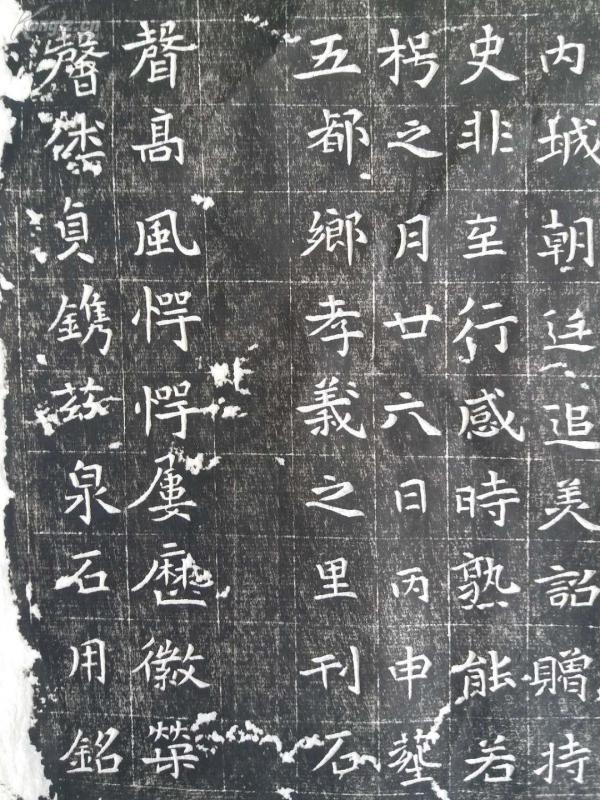 内城朝廷追美詔贈持
史非至行感時熟能若
枵之月廿六日丙申塟
五都鄉孝義之里刊石
聲高風愕愕屢歷徽榮
馨德貞鐫茲泉石用銘